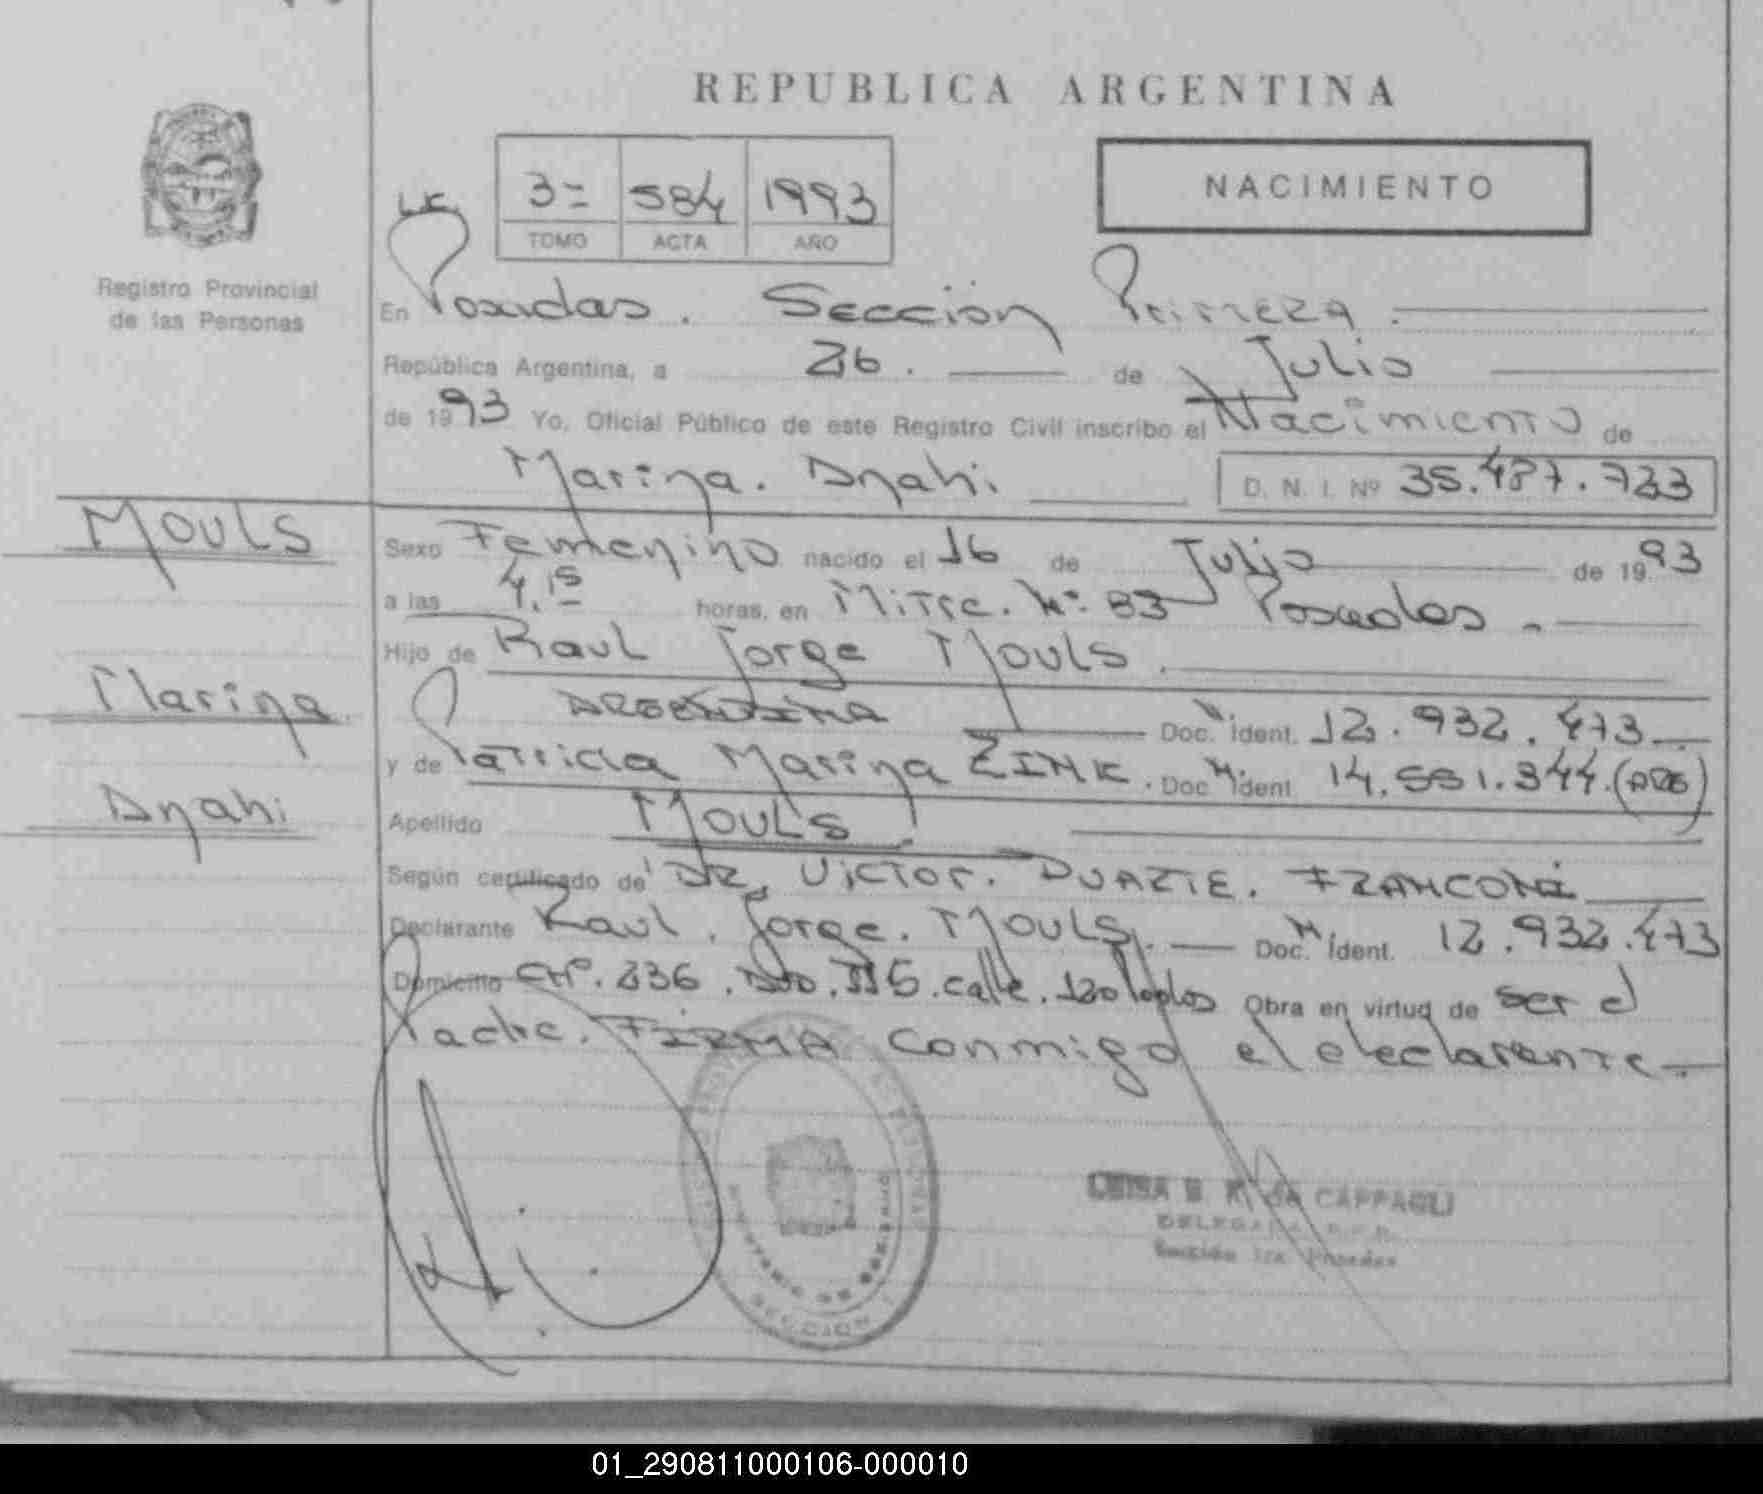 REPUBLICA ARGENTINA
3= 584 1993
TOMO ACTA AÑO
NACIMIENTO
Registro Provincial
de las Personas
En Posadas. Sección Primera.
República Argentina, a 26. de Julio
de 1993 Yo, Oficial Público de este Registro Civil inscribo el Nacimiento de
Marina. Anahi. D. N. I. Nº 35.487.723
MOULS
Marina
Anahi
Sexo Femenino nacido el 16 de Julio de 1993
a las 4,15 horas, en Mitre. Nº 83 Posadas -
Hijo de Raul Jorge Mouls.
ARGENTINA Doc. Ident. 12.932.473
y de Patricia Marina ZINK. Doc. Ident. 14.551.344.(ARG)
Apellido MOULS.
Según certificado de DR. Victor. DUARTE. FRANCONI
Declarante Raul. Jorge. Mouls. Doc. Ident. 12.932.473
Domicilio CH. 236. calle. 120 Obra en virtud de ser el
Padre. FIRMA conmigo el declarante.
LUISA DE CAPPAGLI
DELEGADA R.P.P.
Sección 1ra. Posadas
SECCION
01_290811000106-000010